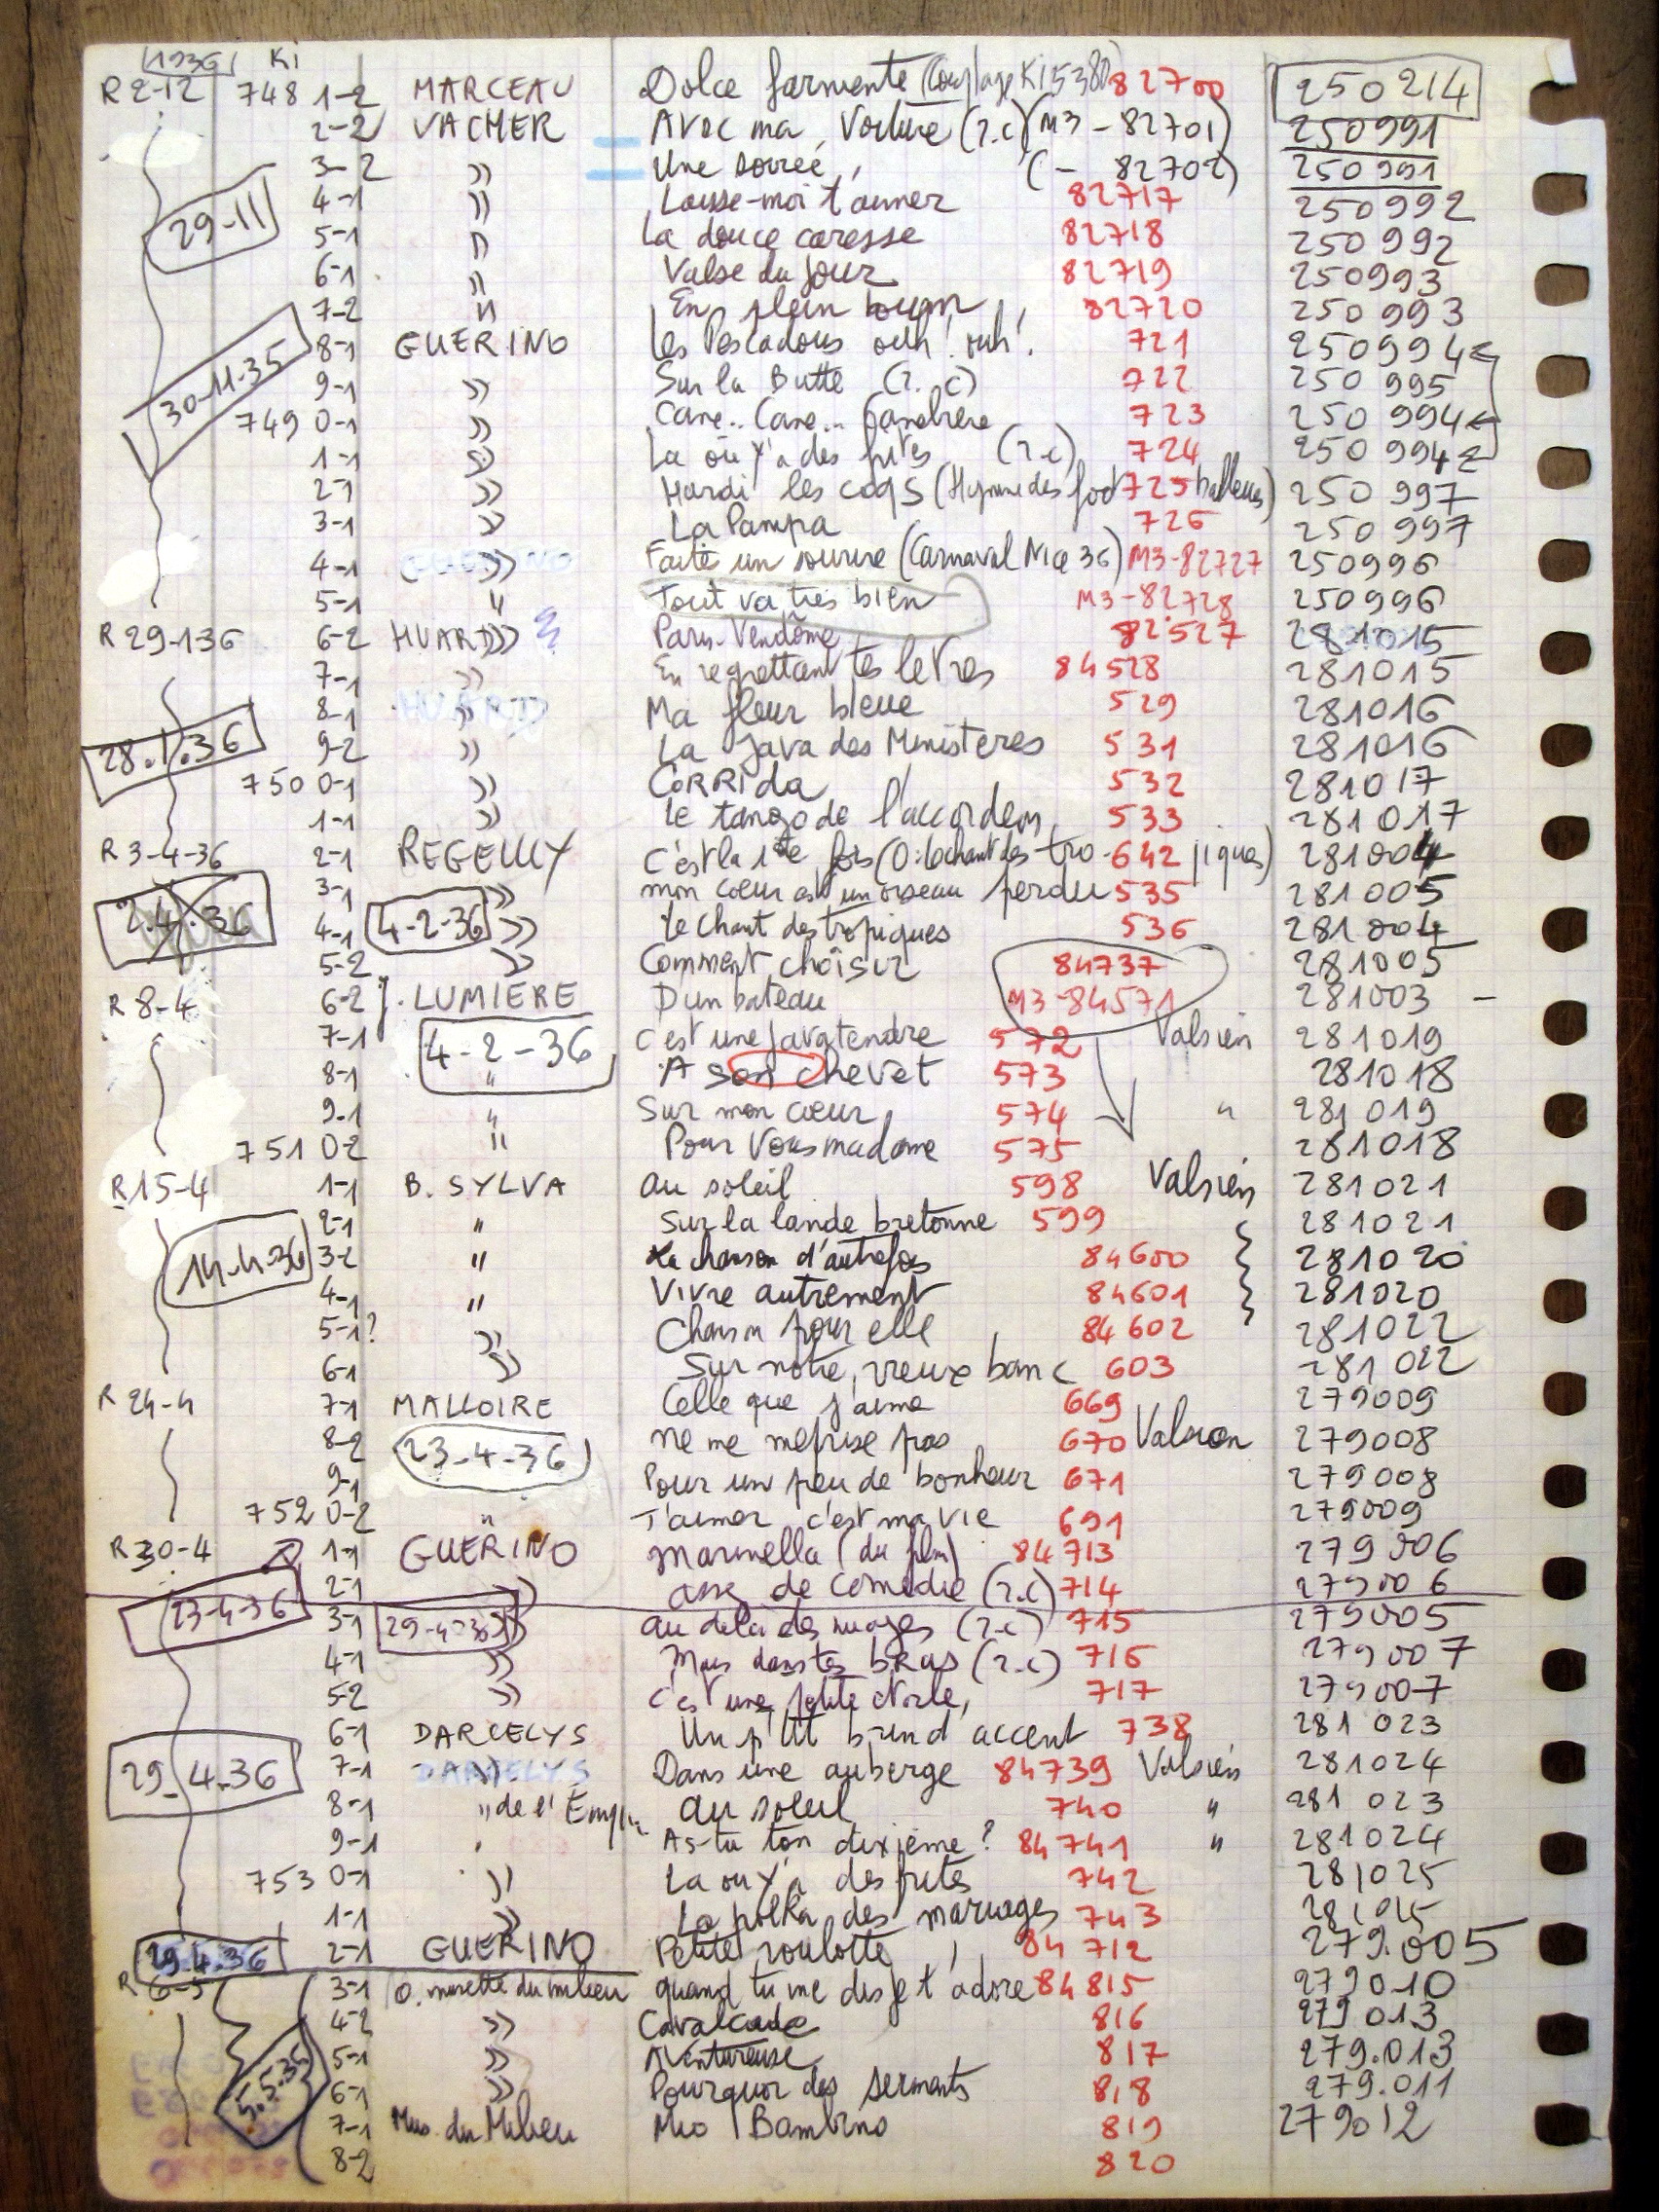 1936 Ki
R 2-12 748 1-2 MARCEAU Dolce farmente (Couplage Ki 5380) 82700 250214
2-2 VACHER Avec ma Voiture (r.c) (M3-82701) 250991
3-2 » Une soirée (- 82702) 250991
4-1 » Laisse-moi t'aimer 82717 250992
29-11 5-1 » La douce caresse 82718 250992
6-1 » Valse du jour 82719 250993
7-2 » En plein boum 82720 250993
8-1 GUERINO Les Pescadous ouh! ouh! 721 250994
30-11-35 9-1 » Sur la Butte (r.c) 722 250 995
749 0-1 » Cane.. Cane.. Canebiere 723 250 994
1-1 » La où y'a des fritES (r.c) 724 250 994
2-1 » Hardi les coqs (Hymne des foot 725 balleurs) 250 997
3-1 » La Pampa 726 250 997
4-1 » Faite un sourire (Carnaval Nice 36) M3-82727 250996
5-1 " Tout va très bien M3-82728 250996
R 29-1 36 6-2 HUARD » Paris-Vendôme 82.527 281015
7-1 » En regrettant tes levres 84528 281015
8-1 » Ma fleur bleue 529 281016
28.1.36 9-2 » La java des Ministeres 531 281016
750 0-1 » CORRIda 532 281017
1-1 » Le tango de l'accordeon 533 281017
R 3-4-36 2-1 REGELLY C'est la 1ère fois (O: le chant des tro- 642 piques) 281004
3-1 » mon coeur est un oiseau perdu 535 281005
2.4.36 4-1 4-2-36 » Le chant des tropiques 536 281004
5-2 » Comment choisir 84737 281005
R 8-4 6-2 LUMIERE D'un bateau M3-84571 281003 -
7-1 4-2-36 C'est une java tendre 572 Valsien 281019
8-1 " A son chevet 573 281018
9.1 " Sur mon coeur 574 " 281019
751 0-2 " Pour Vous madame 575 281018
R 15-4 1-1 B. SYLVA au soleil 598 Valsien 281021
2-1 " Sur la lande bretonne 599 281021
14-4-36 3-2 " La chanson d'autrefois 84600 281020
4-1 " Vivre autrement 84601 281020
5-1? » Chanson pour elle 84602 281022
6-1 » Sur notre vieux banc 603 281022
R 24-4 7-1 MALLOIRE Celle que j'aime 669 279009
8-2 23-4-36 Ne me meprise pas 670 Valsien 279008
9-1 Pour un peu de bonheur 671 279008
752 0-2 " T'aimer c'est ma vie 691 279009
R 30-4 1-1 GUERINO Marinella (du film) 84713 279006
2-1 » assez de comedie (r.c) 714 279006
23-4-36 3-1 29-4-36 » au delà des nuages (r.c) 715 279005
4-1 » Mais dans tes bras (r.c) 716 279007
5-2 » C'est une petite etoile 717 279007
6-1 DARCELYS Un p'tit brin d'accent 738 281023
29.4.36 7-1 » Dans une auberge 84739 Valsien 281024
8-1 " de l'Empire au soleil 740 " 281023
9-1 " As-tu ton dixième? 84741 " 281024
753 0-1 » La ou y'a des frites 742 281025
1-1 » La polka des mariages 743 281025
29.4.36 2-1 GUERINO Petite roulotte 84712 279.005
R 6-5 3-1 O. musette du milieu quand tu me dis je t'adore 84815 279010
4-2 » Cavalcade 816 279013
5-1 » Aventureuse 817 279.013
5.5.36 6-1 » Pourquoi des serments 818 279.011
7-1 Mus. du Milieu Mio Bambino 819 279012
8-2 820